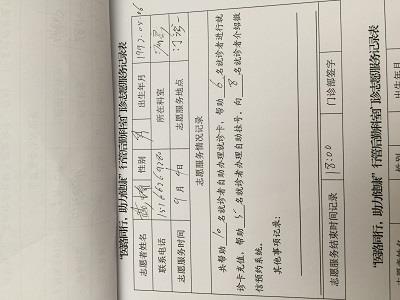 "医路同行，助力健康"行管后勤科室门诊志愿服务记录表
志愿者姓名 性别 男 出生年月 1992.05
联系电话 所在科室
志愿服务时间 9月9日 志愿服务地点 门诊一
志愿服务情况记录
共帮助 10 名就诊者自助办理就诊卡，帮助 6 名就诊者进行就
诊卡充值，帮助 5 名就诊者办理自助挂号，向 8 名就诊者介绍微
信预约系统。
其他事项记录：
志愿服务结束时间记录 18:00 门诊部签字
"医路同行，助力健康"行管后勤科室门诊志愿服务记录表
志愿者姓名 性别 出生年月